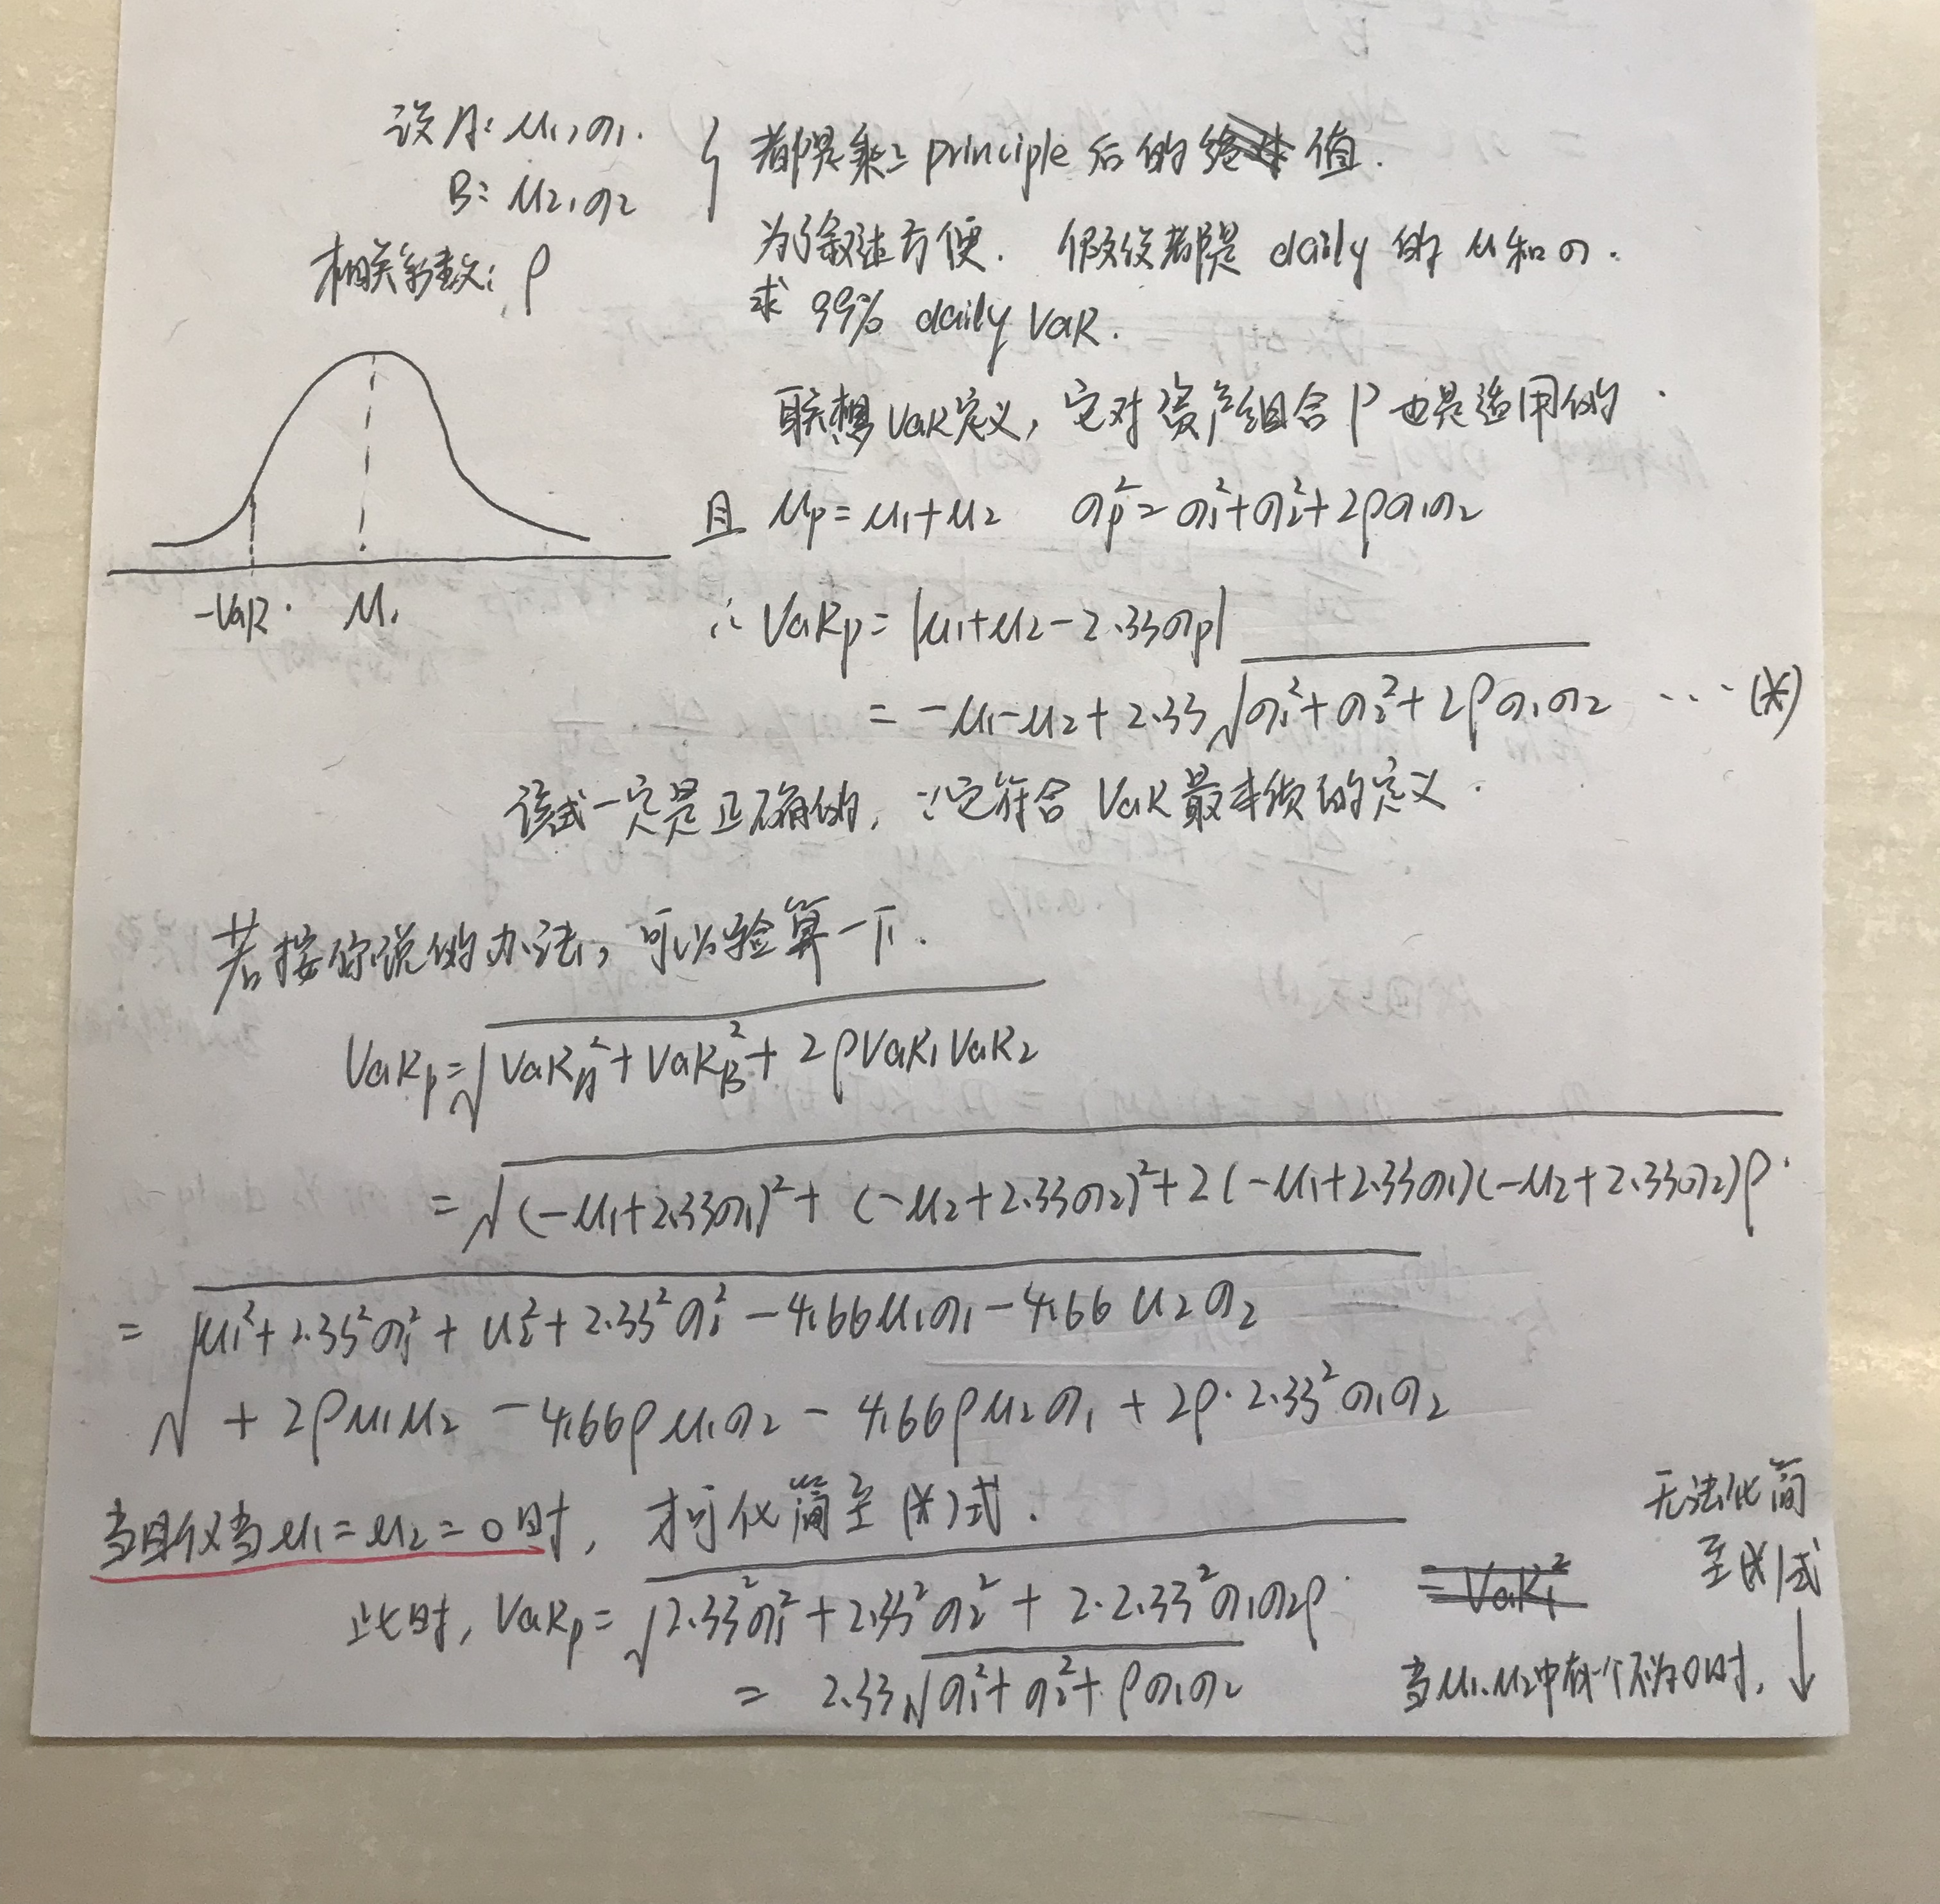 设A: μ₁, σ₁.
B: μ₂, σ₂
相关系数: ρ
都是乘上 principle 后的 值.
为了叙述方便. 假设都是 daily 的 μ 和 σ.
求 99% daily VaR.
联想 VaR定义, 它对资产组合 P 也是适用的.
-VaR. μ.
且 μp = μ₁+μ₂ σp² = σ₁²+σ₂²+2ρσ₁σ₂
∴ VaRp = |μ₁+μ₂-2.33σp|
= -μ₁-μ₂+2.33√(σ₁²+σ₂²+2ρσ₁σ₂) ... (*)
该式一定是正确的, ∵它符合 VaR 最本质的定义.
若按你说的办法, 可以验算一下.
VaRp = √(VaR_A²+VaR_B²+2ρVaR₁VaR₂)
= √((-μ₁+2.33σ₁)²+(-μ₂+2.33σ₂)²+2(-μ₁+2.33σ₁)(-μ₂+2.33σ₂)ρ)
= √(μ₁²+2.33²σ₁²+μ₂²+2.33²σ₂²-4.66μ₁σ₁-4.66μ₂σ₂
+2ρμ₁μ₂-4.66ρμ₁σ₂-4.66ρμ₂σ₁+2ρ·2.33²σ₁σ₂)
当且仅当 μ₁=μ₂=0 时, 才可化简至(*)式.
此时, VaRp = √(2.33²σ₁²+2.33²σ₂²+2·2.33²σ₁σ₂ρ)
= 2.33√(σ₁²+σ₂²+ρσ₁σ₂)
当μ₁、μ₂中有一个不为0时,
无法化简
至(*)式